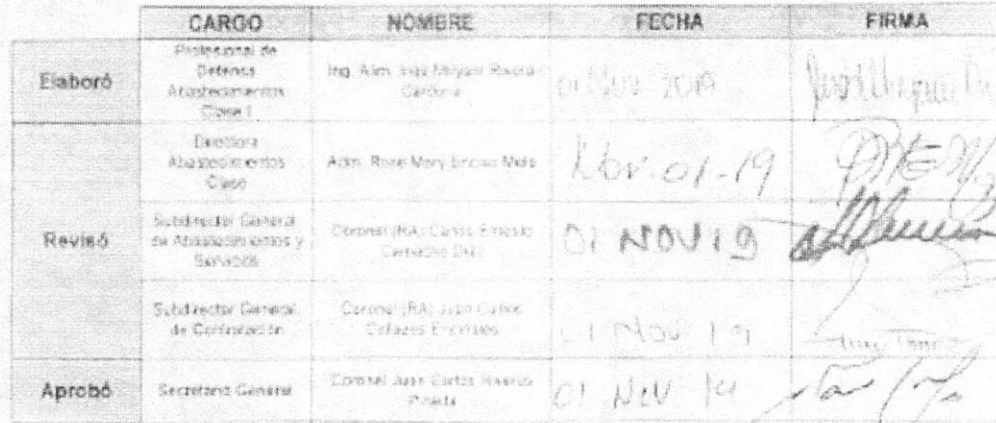 CARGO NOMBRE FECHA FIRMA
Elaboró
Profesional de
Defensa
Abastecimientos
Clase I
Ing. Alim.
01 Nov 2019
Revisó
Directora
Abastecimientos
Clase I
Adm. Rose Mary
Nov-01-19
Subdirector General
de Abastecimientos y
Servicios
Coronel (RA) Carlos Ernesto
Camacho Díaz
01 NOV 19
Subdirector General
de Contratación
Coronel (RA) Juan Carlos
Collazos Encinales
01 Nov 19
Aprobó
Secretario General
Coronel Juan Carlos Riveros
Pineda
01 NOV 19